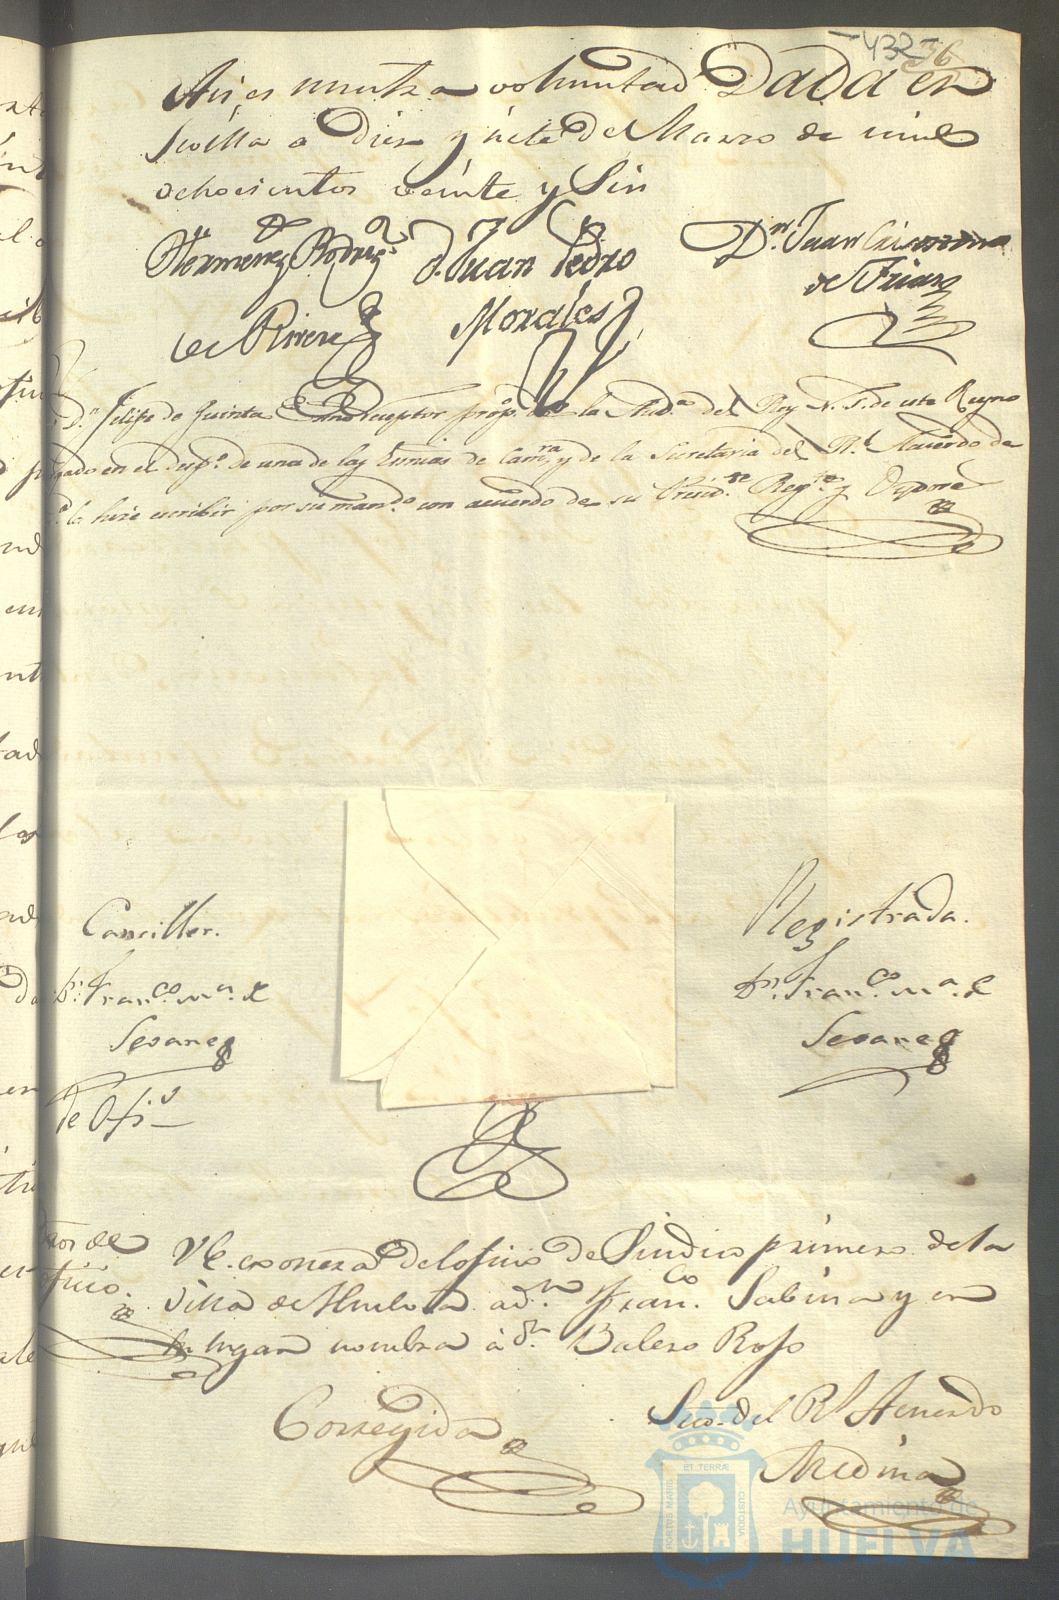 432 36
Asi es nuetra voluntad Dada en
Sevilla a Diez y siete de Marzo de mil
ochocientos veinte y Seis
Hermeneg Rodrig.z
de Rivera
D. Juan Pedro
Morales
Dn. Juan
de Frias
Dn. Felipe de Quinta Esnoreceptor prop.o de la Aud.a del Rey N. S. de este Reyno
en el desp.o de una de las Esnias de Cam.ra y de la Secretaria del R.l Acuerdo de
la hice escribir por su man.do con acuerdo de su Presid.te Reg.te y Oydores
Canciller.
Dn. Franco. Ma. de
Seoane
de Ofi.o
Registrada.
Dn. Franco. Ma. de
Seoane
VE. exonera del oficio de Sindico primero de la
villa de Huelva a dn. Franco. Sabina y en
su lugar nombra à dn. Balero Roso
Corregida
Seco. del Rl Acuerdo
Medina
PORTUS MARIS ET TERRÆ CUSTODIA
Ayuntamiento de
HUELVA